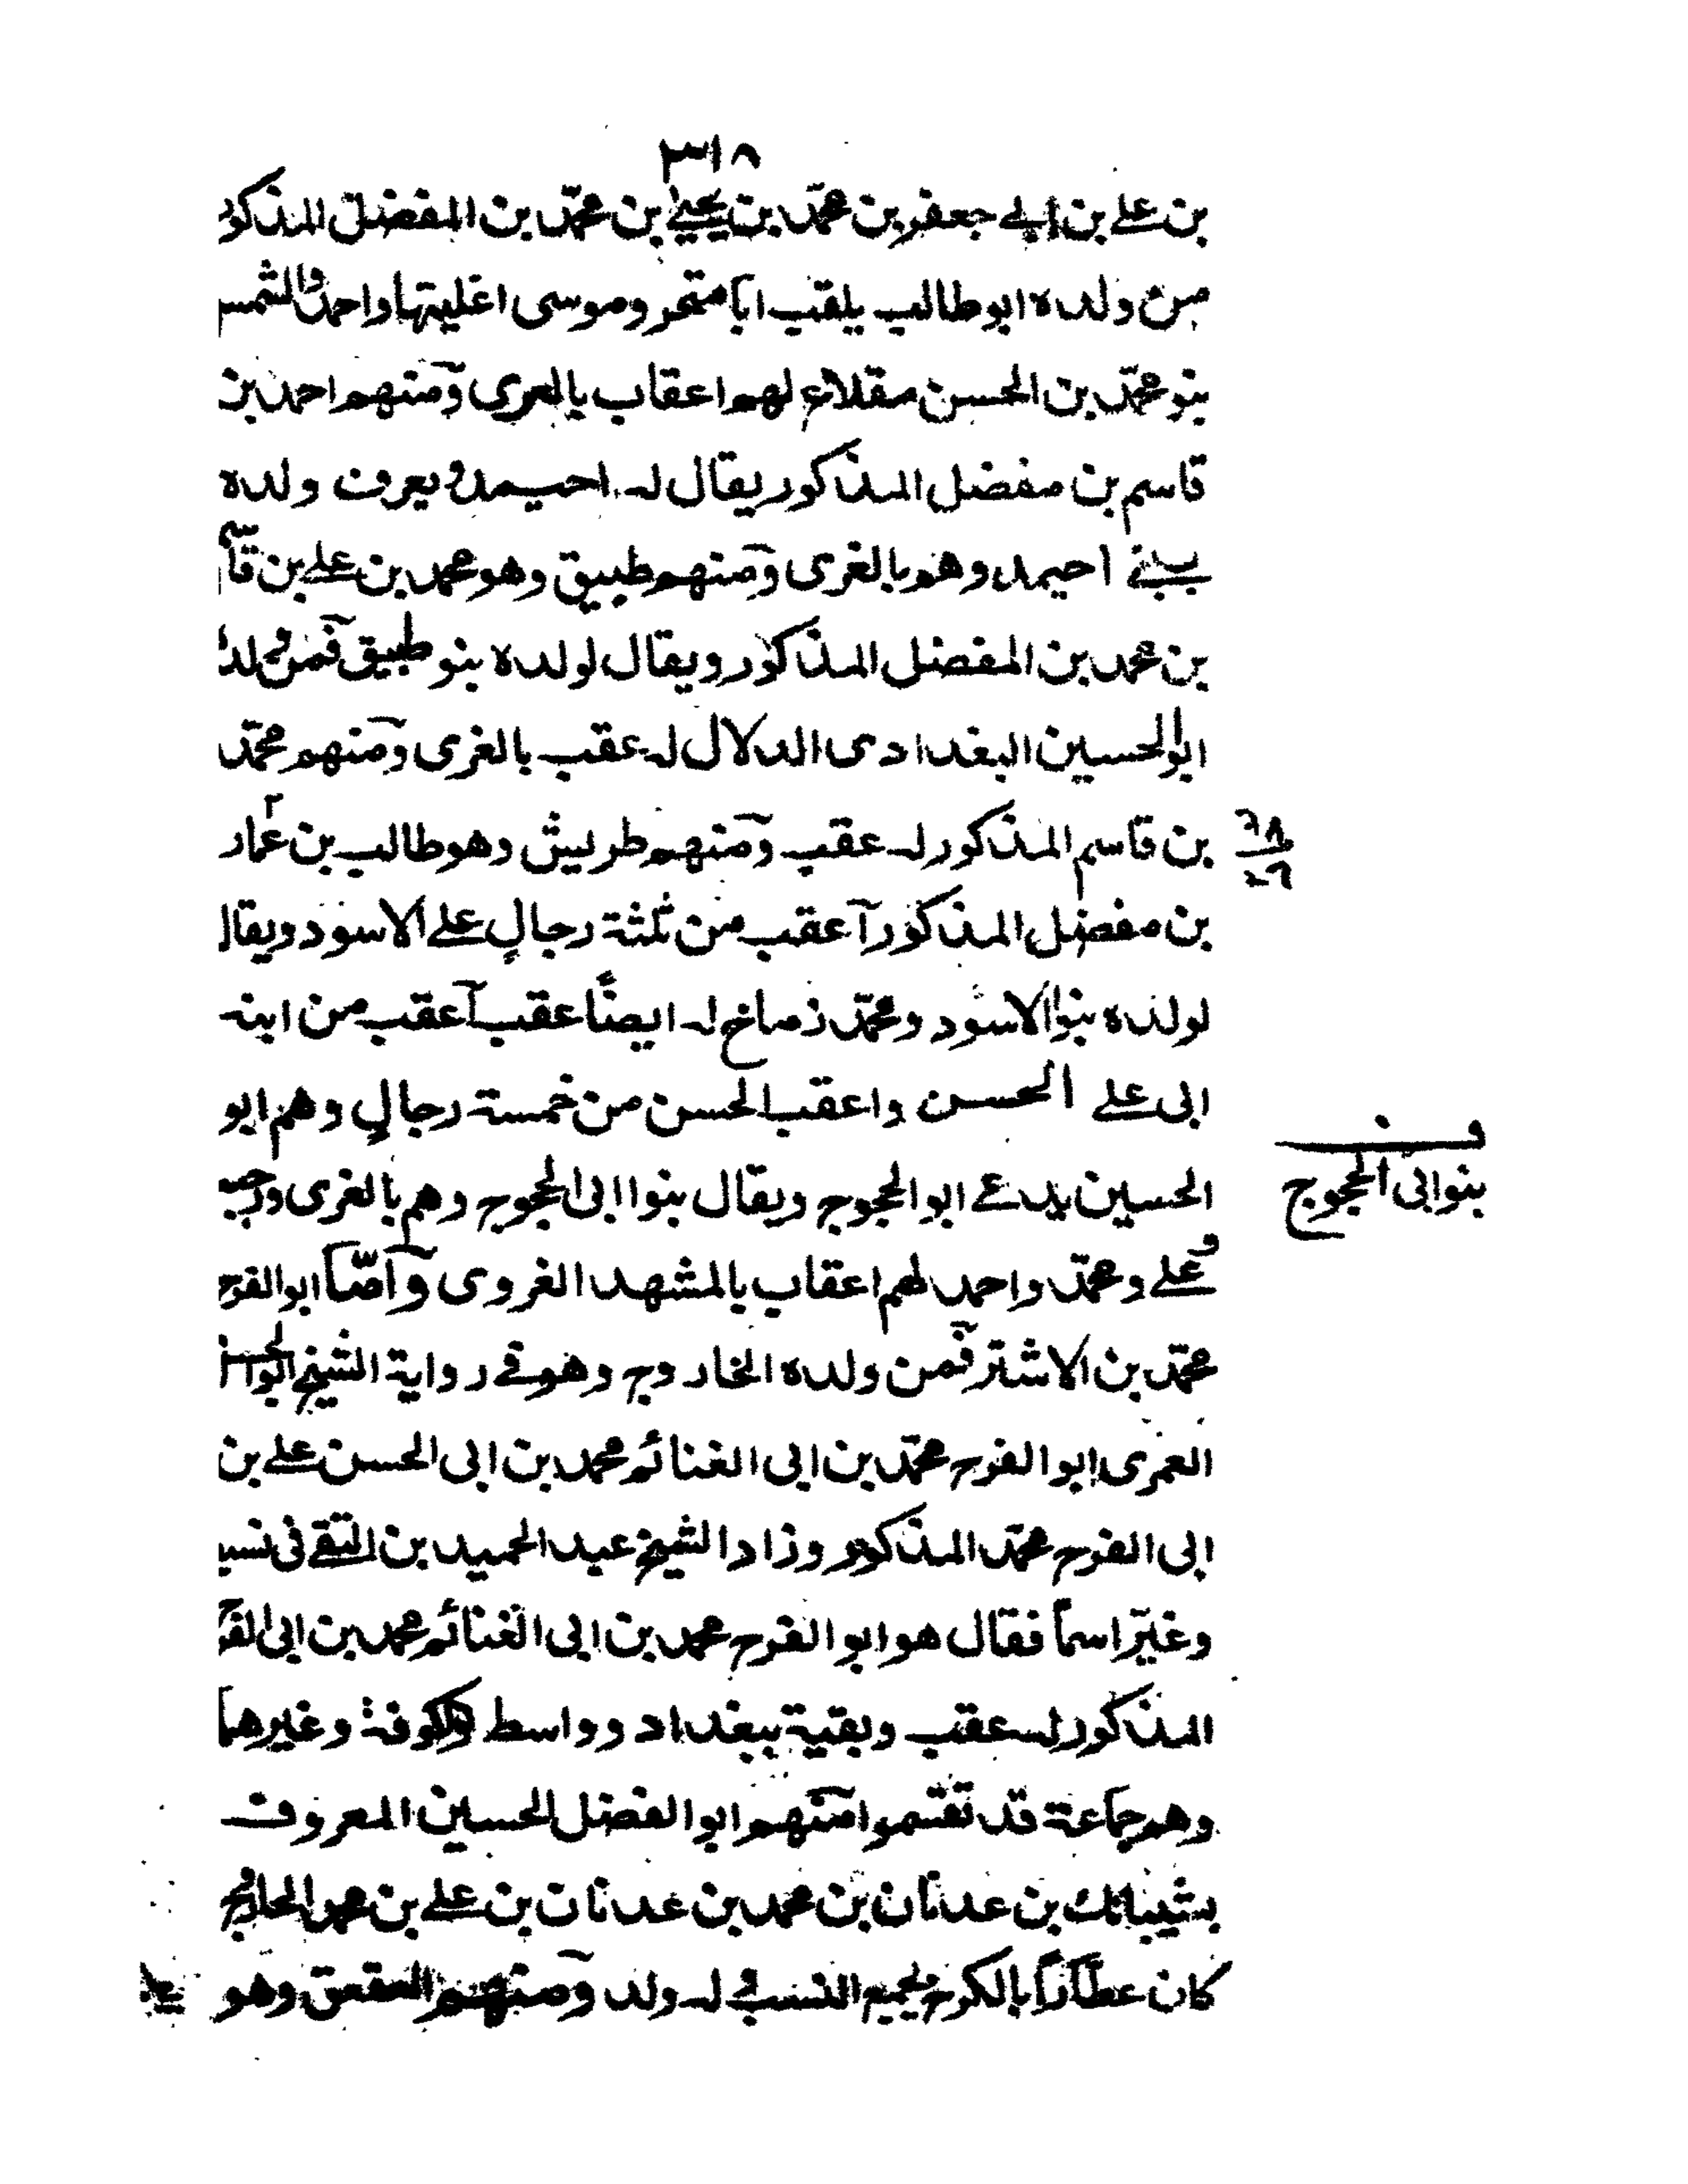 ٣١٨
بن علي بن ابي جعفر بن محمّد بن يحيي بن محمّد بن المفضل المذكور
من ولده ابو طالب يلقب ابا وموسى واحمد والشمس
بنو محمّد بن الحسن مقلاع لهم اعقاب بالغرى ومنهم احمد بن
قاسم بن مفضل المذكور يقال له احيمد ويعرف ولده
ببني احيمد وهم بالغرى ومنهم طبيق وهو محمد بن علي بن قاسم
بن محمد بن المفضل المذكور ويقال لولده بنو طبيق فمن ولده
ابو الحسين البغدادى الدلال له عقب بالغرى ومنهم محمّد
بن قاسم المذكور له عقب ومنهم طريش وهو طالب بن عمار
بن مفضل المذكور اعقب من ثلثة رجالٍ علي الاسود ويقال
لولده بنوا الاسود ومحمّد له ايضًا عقب اعقب من ابنه
ابى علي الحسن واعقب الحسن من خمسة رجالٍ وهم ابو
الحسين يدعي ابو الحجوج ويقال بنوا ابى الحجوج وهم بالغرى
وعلي ومحمّد واحمد لهم اعقاب بالمشهد الغروى وامّا ابو الفرج
محمّد بن الاشتر فمن ولده الخاروج وهو في رواية الشيخ ابو الحسن
العمرى ابو الفرج محمّد بن ابى الغنائم محمد بن ابى الحسن علي بن
ابى الفرج محمّد المذكور وزاد الشيخ عبد الحميد بن التقي فى نسبه
وغيّر اسماً فقال هو ابو الفرج محمد بن ابى الغنائم محمد بن ابى الفرج
المذكور له عقب وبقية ببغداد وواسط والكوفة وغيرها
وهم جماعة قد تقسموا منهم ابو الفضل الحسين المعروف
بن عدنان بن محمد بن عدنان بن علي بن محمد الخاروج
كان عطّاراً بالكرخ النسب له ولد ومنهم وهو
بنو ابى الحجوج